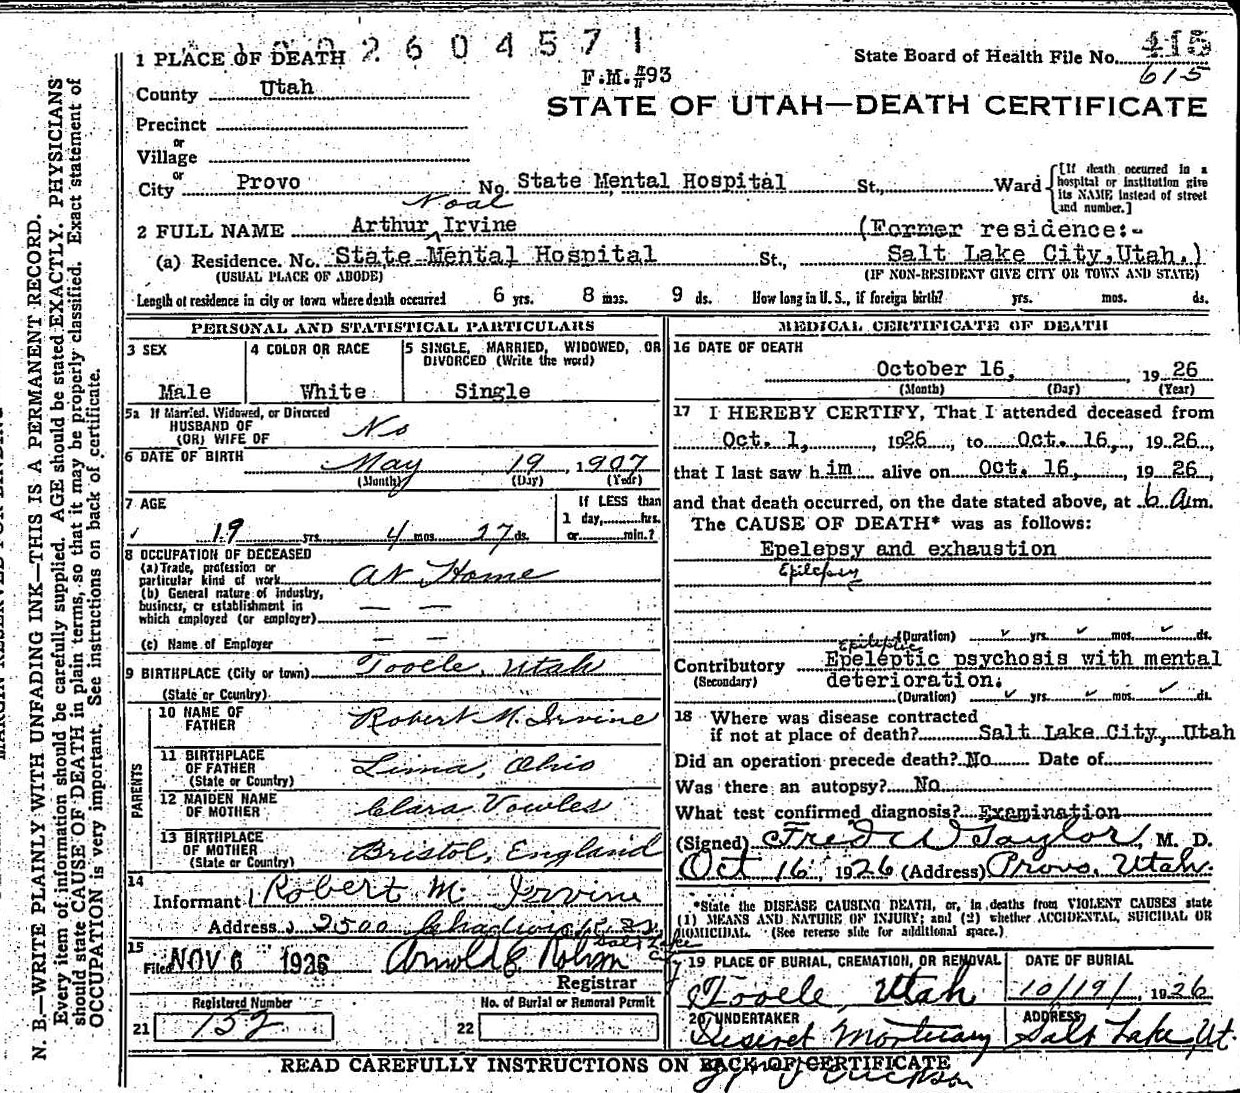 1 PLACE OF DEATH
2604571
State Board of Health File No. 415
615
F.M.#93
County Utah
STATE OF UTAH—DEATH CERTIFICATE
Precinct
or
Village
or
City Provo No. State Mental Hospital St., Ward
[If death occurred in a hospital or institution give its NAME instead of street and number.]
Noal
2 FULL NAME Arthur Irvine (Former residence:-
(a) Residence. No. State Mental Hospital St., Salt Lake City, Utah.)
(USUAL PLACE OF ABODE) (IF NON-RESIDENT GIVE CITY OR TOWN AND STATE)
Length of residence in city or town where death occurred 6 yrs. 8 mos. 9 ds. How long in U. S., if foreign birth? yrs. mos. ds.
PERSONAL AND STATISTICAL PARTICULARS
3 SEX
Male
4 COLOR OR RACE
White
5 SINGLE, MARRIED, WIDOWED, OR DIVORCED (Write the word)
Single
5a If Married, Widowed, or Divorced
HUSBAND OF
(OR) WIFE OF No
6 DATE OF BIRTH May 19, 1907
(Month) (Day) (Year)
7 AGE
19 yrs. 4 mos. 27 ds.
If LESS than
1 day, hrs.
or min.?
8 OCCUPATION OF DECEASED
(a) Trade, profession or
particular kind of work At Home
(b) General nature of Industry,
business, or establishment in
which employed (or employer) — —
(c) Name of Employer — —
9 BIRTHPLACE (City or town) Tooele, Utah
(State or Country)
PARENTS
10 NAME OF
FATHER Robert M. Irvine
11 BIRTHPLACE
OF FATHER Lima, Ohio
(State or Country)
12 MAIDEN NAME
OF MOTHER Clara Vowles
13 BIRTHPLACE
OF MOTHER Bristol, England
(State or Country)
14
Informant Robert M. Irvine
Address 2500
Salt Lake City
15
Filed NOV 6 1926 Arnold
Registrar
Registered Number
21 152
No. of Burial or Removal Permit
22
MEDICAL CERTIFICATE OF DEATH
16 DATE OF DEATH
October 16, 1926
(Month) (Day) (Year)
17 I HEREBY CERTIFY, That I attended deceased from
Oct. 1, 1926 to Oct. 16, 1926,
that I last saw him alive on Oct. 16, 1926,
and that death occurred, on the date stated above, at 6 am.
The CAUSE OF DEATH* was as follows:
Epelepsy and exhaustion
Epilepsy
(Duration) yrs. mos. ds.
Epileptic
Contributory Epeleptic psychosis with mental
(Secondary) deterioration.
(Duration) yrs. mos. ds.
18 Where was disease contracted
if not at place of death? Salt Lake City, Utah
Did an operation precede death? No Date of
Was there an autopsy? No
What test confirmed diagnosis? Examination
(Signed) Fred W Taylor, M. D.
Oct 16, 1926 (Address) Provo, Utah.
*State the DISEASE CAUSING DEATH, or, in deaths from VIOLENT CAUSES state
(1) MEANS AND NATURE OF INJURY; and (2) whether ACCIDENTAL, SUICIDAL OR
HOMICIDAL. (See reverse side for additional space.)
19 PLACE OF BURIAL, CREMATION, OR REMOVAL
Tooele, Utah
DATE OF BURIAL
10/19/, 1926
20 UNDERTAKER
Deseret Mortuary
ADDRESS
Salt Lake, Ut.
READ CAREFULLY INSTRUCTIONS ON BACK OF CERTIFICATE
N. B.—WRITE PLAINLY WITH UNFADING INK—THIS IS A PERMANENT RECORD.
Every item of information should be carefully supplied. AGE should be stated EXACTLY. PHYSICIANS
should state CAUSE OF DEATH in plain terms, so that it may be properly classified. Exact statement of
OCCUPATION is very important. See instructions on back of certificate.